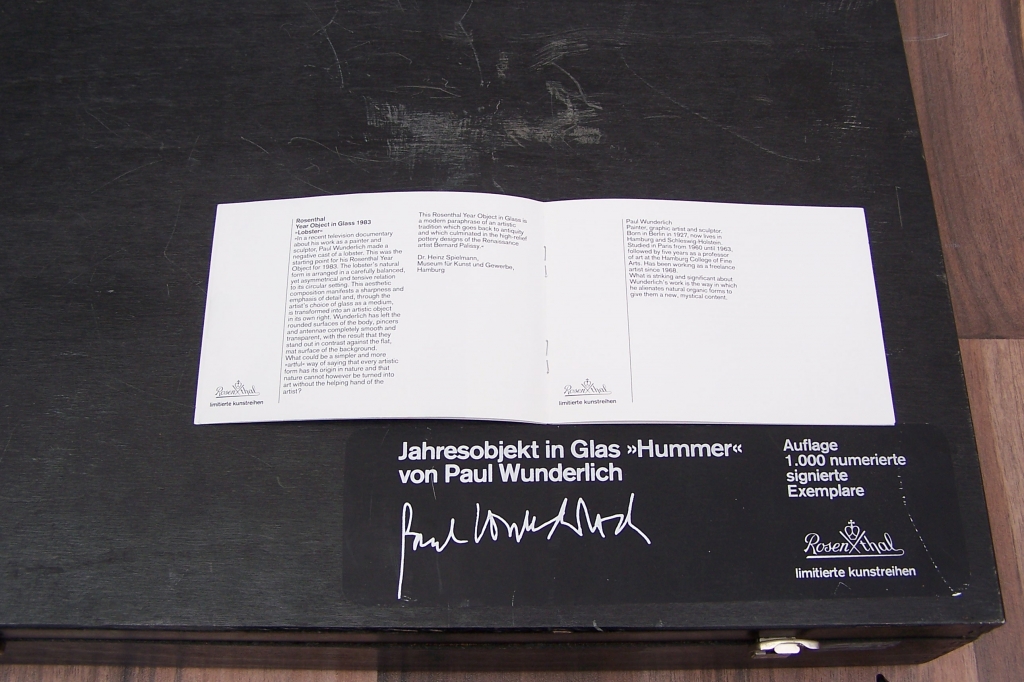 Rosenthal
Year Object in Glass 1983
»Lobster«
»In a recent television documentary
about his work as a painter and
sculptor, Paul Wunderlich made a
negative cast of a lobster. This was the
starting point for his Rosenthal Year
Object for 1983. The lobster's natural
form is arranged in a carefully balanced,
yet asymmetrical and tensive relation
to its circular setting. This aesthetic
composition manifests a sharpness and
emphasis of detail and, through the
artist's choice of glass as a medium,
is transformed into an artistic object
in its own right. Wunderlich has left the
rounded surfaces of the body, pincers
and antennae completely smooth and
transparent, with the result that they
stand out in contrast against the flat,
mat surface of the background.
What could be a simpler and more
»artful« way of saying that every artistic
form has its origin in nature and that
nature cannot however be turned into
art without the helping hand of the
artist?
This Rosenthal Year Object in Glass is
a modern paraphrase of an artistic
tradition which goes back to antiquity
and which culminated in the high-relief
pottery designs of the Renaissance
artist Bernard Palissy.«
Dr. Heinz Spielmann,
Museum für Kunst und Gewerbe,
Hamburg
Rosenthal
limitierte kunstreihen
Paul Wunderlich
Painter, graphic artist and sculptor.
Born in Berlin in 1927, now lives in
Hamburg and Schleswig-Holstein.
Studied in Paris from 1960 until 1963,
followed by five years as a professor
of art at the Hamburg College of Fine
Arts. Has been working as a freelance
artist since 1968.
What is striking and significant about
Wunderlich's work is the way in which
he alienates natural organic forms to
give them a new, mystical content.
Rosenthal
limitierte kunstreihen
Jahresobjekt in Glas »Hummer«
von Paul Wunderlich
Paul Wunderlich
Auflage
1.000 numerierte
signierte
Exemplare
Rosenthal
limitierte kunstreihen